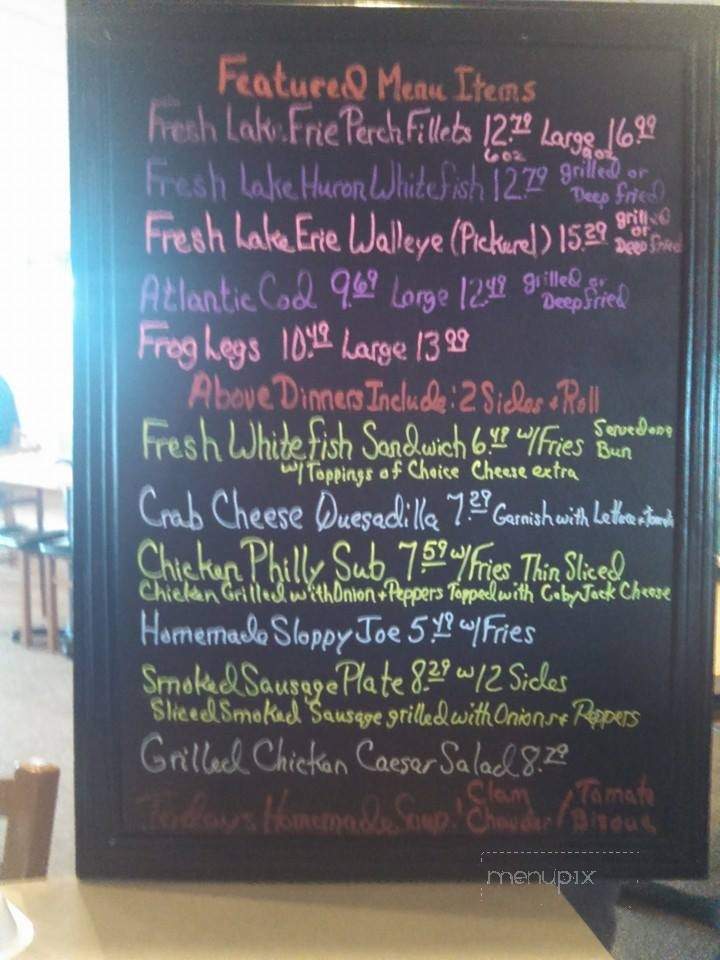 Featured Menu Items
Fresh Lake Erie Perch Fillets 12.79 Large 16.99
6oz 9oz
Fresh Lake Huron Whitefish 12.79 grilled or Deep fried
Fresh Lake Erie Walleye (Pickerel) 15.29 grilled or Deep fried
Atlantic Cod 9.69 Large 12.49 grilled or Deep fried
Frog Legs 10.49 Large 13.99
Above Dinners Include: 2 Sides + Roll
Fresh Whitefish Sandwich 6.49 w/Fries Served on a Bun
w/Toppings of Choice Cheese extra
Crab Cheese Quesadilla 7.29 Garnish with Lettuce + Tomato
Chicken Philly Sub 7.59 w/Fries Thin Sliced
Chicken Grilled with Onion + Peppers Topped with Coby Jack Cheese
Homemade Sloppy Joe 5.49 w/Fries
Smoked Sausage Plate 8.29 w/2 Sides
Sliced Smoked Sausage grilled with Onions + Peppers
Grilled Chicken Caesar Salad 8.29
Todays Homemade Soup: Clam Chowder / Tomato Bisque
menupix